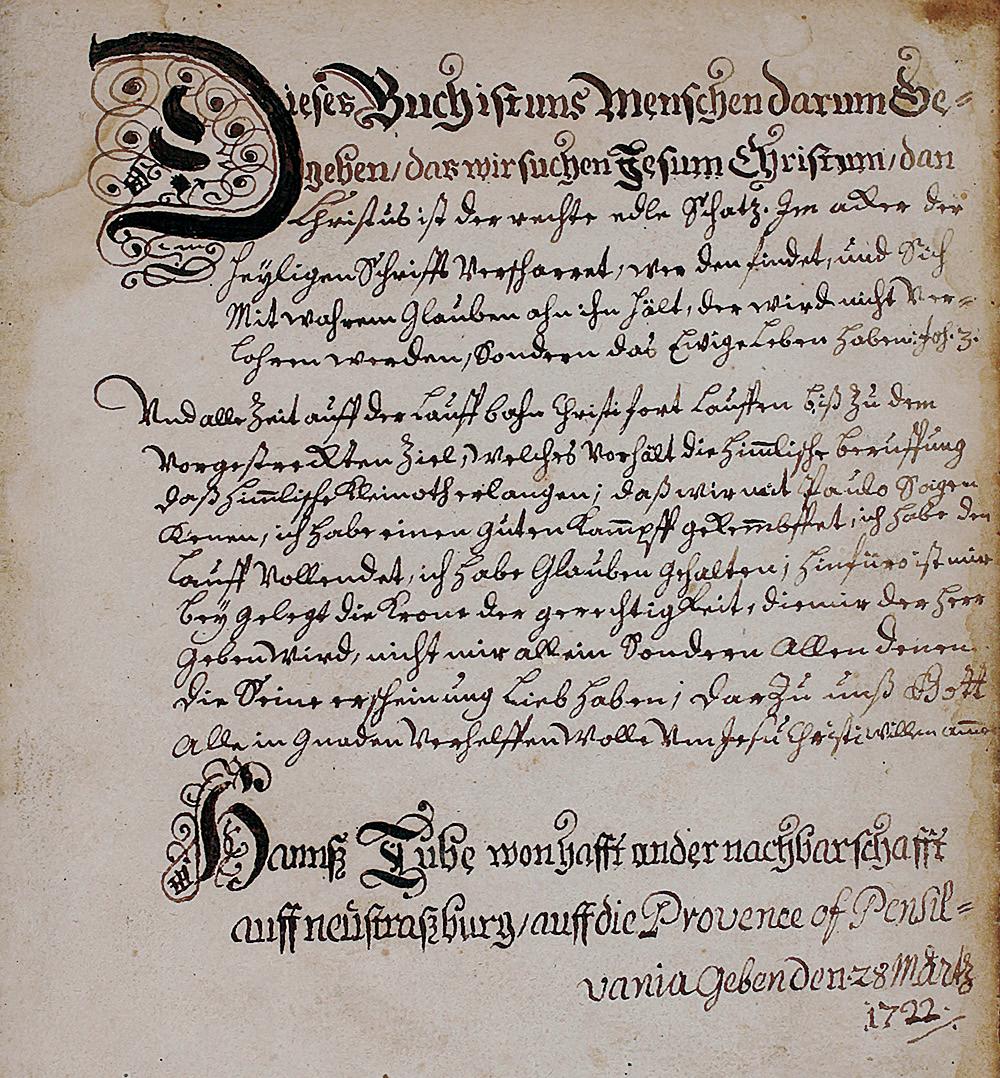 Dieses Buch ist uns Menschen darum Ge=
geben/das wir suchen Jesum Christum/dan
Christus ist der rechte edle Schatz. Im acker der
Heyligen Schrifft Verscharret, wer den findet, und Sich
Mit wahrem Glauben ahn ihn hält, der wird nicht Ver=
lohren werden, Sondern das Ewige Leben haben: Joh. 3.
Und alle Zeit auff der Lauff bahn Christi fort Lauffen biß Zu dem
Vorgestreckten Ziel, welches Vorhält die himlische beruffung
daß himlische Kleinoth erlangen; daß wir mit Paulo Sagen
Kenen, ich habe einen guten Kampff gekembffet, ich habe den
Lauff Vollendet, ich habe Glauben gehalten; hinfüro ist mir
bey gelegt die Krone der gerechtigkeit, die mir der Herr
Geben Wird, nicht mir allein Sondern Allen denen
die Seine erscheinung Lieb haben; dar Zu unß Gott
Alle in Gnaden Verhelffen Wolle Um Jesu Christi willen
Hannß Tübe wonhafft in der nachbarschafft
auff neüstraßburg/auff die Provence of Pensil=
vania Geben den 28 Märtz
1722.